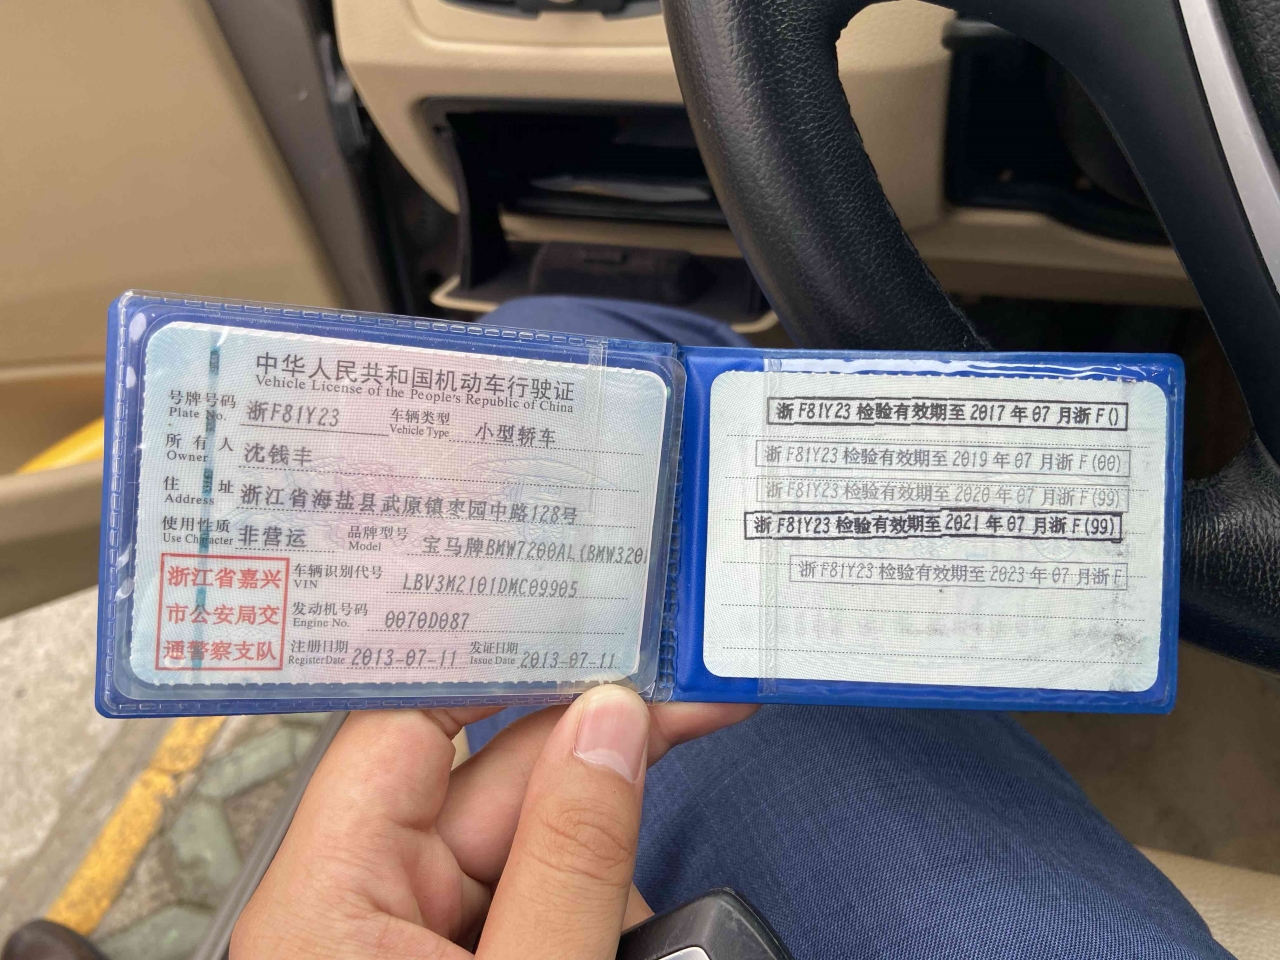 中华人民共和国机动车行驶证
Vehicle License of the People's Republic of China
号牌号码 浙F81Y23 车辆类型 小型轿车
Plate No. Vehicle Type
所有人 沈钱丰
Owner
住址 浙江省海盐县武原镇枣园中路128号
Address
使用性质 非营运 品牌型号 宝马牌BMW7200AL(BMW320
Use Character Model
浙江省嘉兴
市公安局交
通警察支队
车辆识别代号 LBV3M2101DMC09905
VIN
发动机号码 0070D087
Engine No.
注册日期 2013-07-11 发证日期 2013-07-11
Register Date Issue Date
浙F81Y23 检验有效期至 2017 年 07 月浙F()
浙F81Y23 检验有效期至 2019 年 07 月浙F(00)
浙F81Y23 检验有效期至 2020 年 07 月浙F(99)
浙F81Y23 检验有效期至 2021 年 07 月浙F(99)
浙F81Y23 检验有效期至 2023 年 07 月浙F